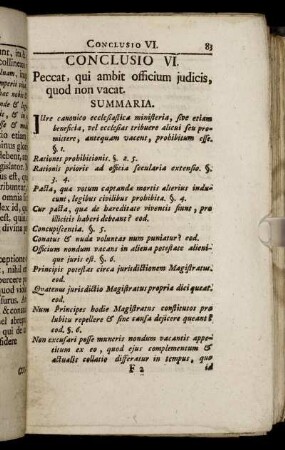 CONCLUSIO VI. 83
CONCLUSIO VI.
Peccat, qui ambit officium judicis,
quod non vacat.
SUMMARIA.
Jure canonico ecclesiastica ministeria, sive etiam
beneficia, vel ecclesias tribuere alicui seu pro-
mittere, antequam vacent, prohibitum esse.
§. 1.
Rationes prohibitionis. §. 2. 5.
Rationis prioris ad officia secularia extensio. §.
3. 4.
Pacta, quæ votum captandæ mortis alterius indu-
cunt, legibus civilibus prohibita. §. 4.
Cur pacta, quæ de hereditate viventis fiunt, pro
illicitis haberi debeant? eod.
Concupiscentia. §. 5.
Conatus & nuda voluntas num puniatur? eod.
Officium nondum vacans in aliena potestate alieni-
que juris est. §. 6.
Principis potestas circa jurisdictionem Magistratus.
eod.
Quatenus jurisdictio Magistratus propria dici queat.
eod.
Num Principes hodie Magistratus constitutos pro
lubitu repellere & sine causa dejicere queant?
eod. §. 6.
Non excusari posse muneris nondum vacantis appe-
titum ex eo, quod ejus complementum &
actualis collatio differatur in tempus, quo
F 2 id